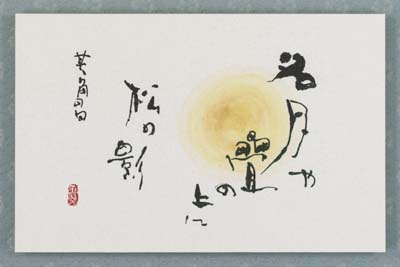 名月や
畳の
上に
松の影
其角の句